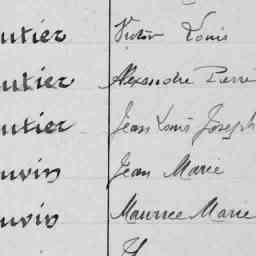 utier Victor Louis
utier Alexandre Pierre
utier Jean Louis Joseph
uvin Jean Marie
uvin Maurice Marie